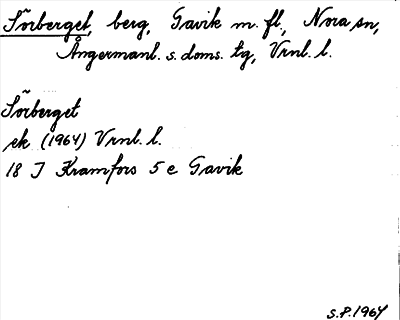 Sörberget, berg, Gavik m. fl, Nora sn,
Ångermanl. s. doms. tg, Vrnl. l.
Sörberget
ek (1964) Vrnl. l.
18 J Kramfors 5 e Gavik
S.P. 1964